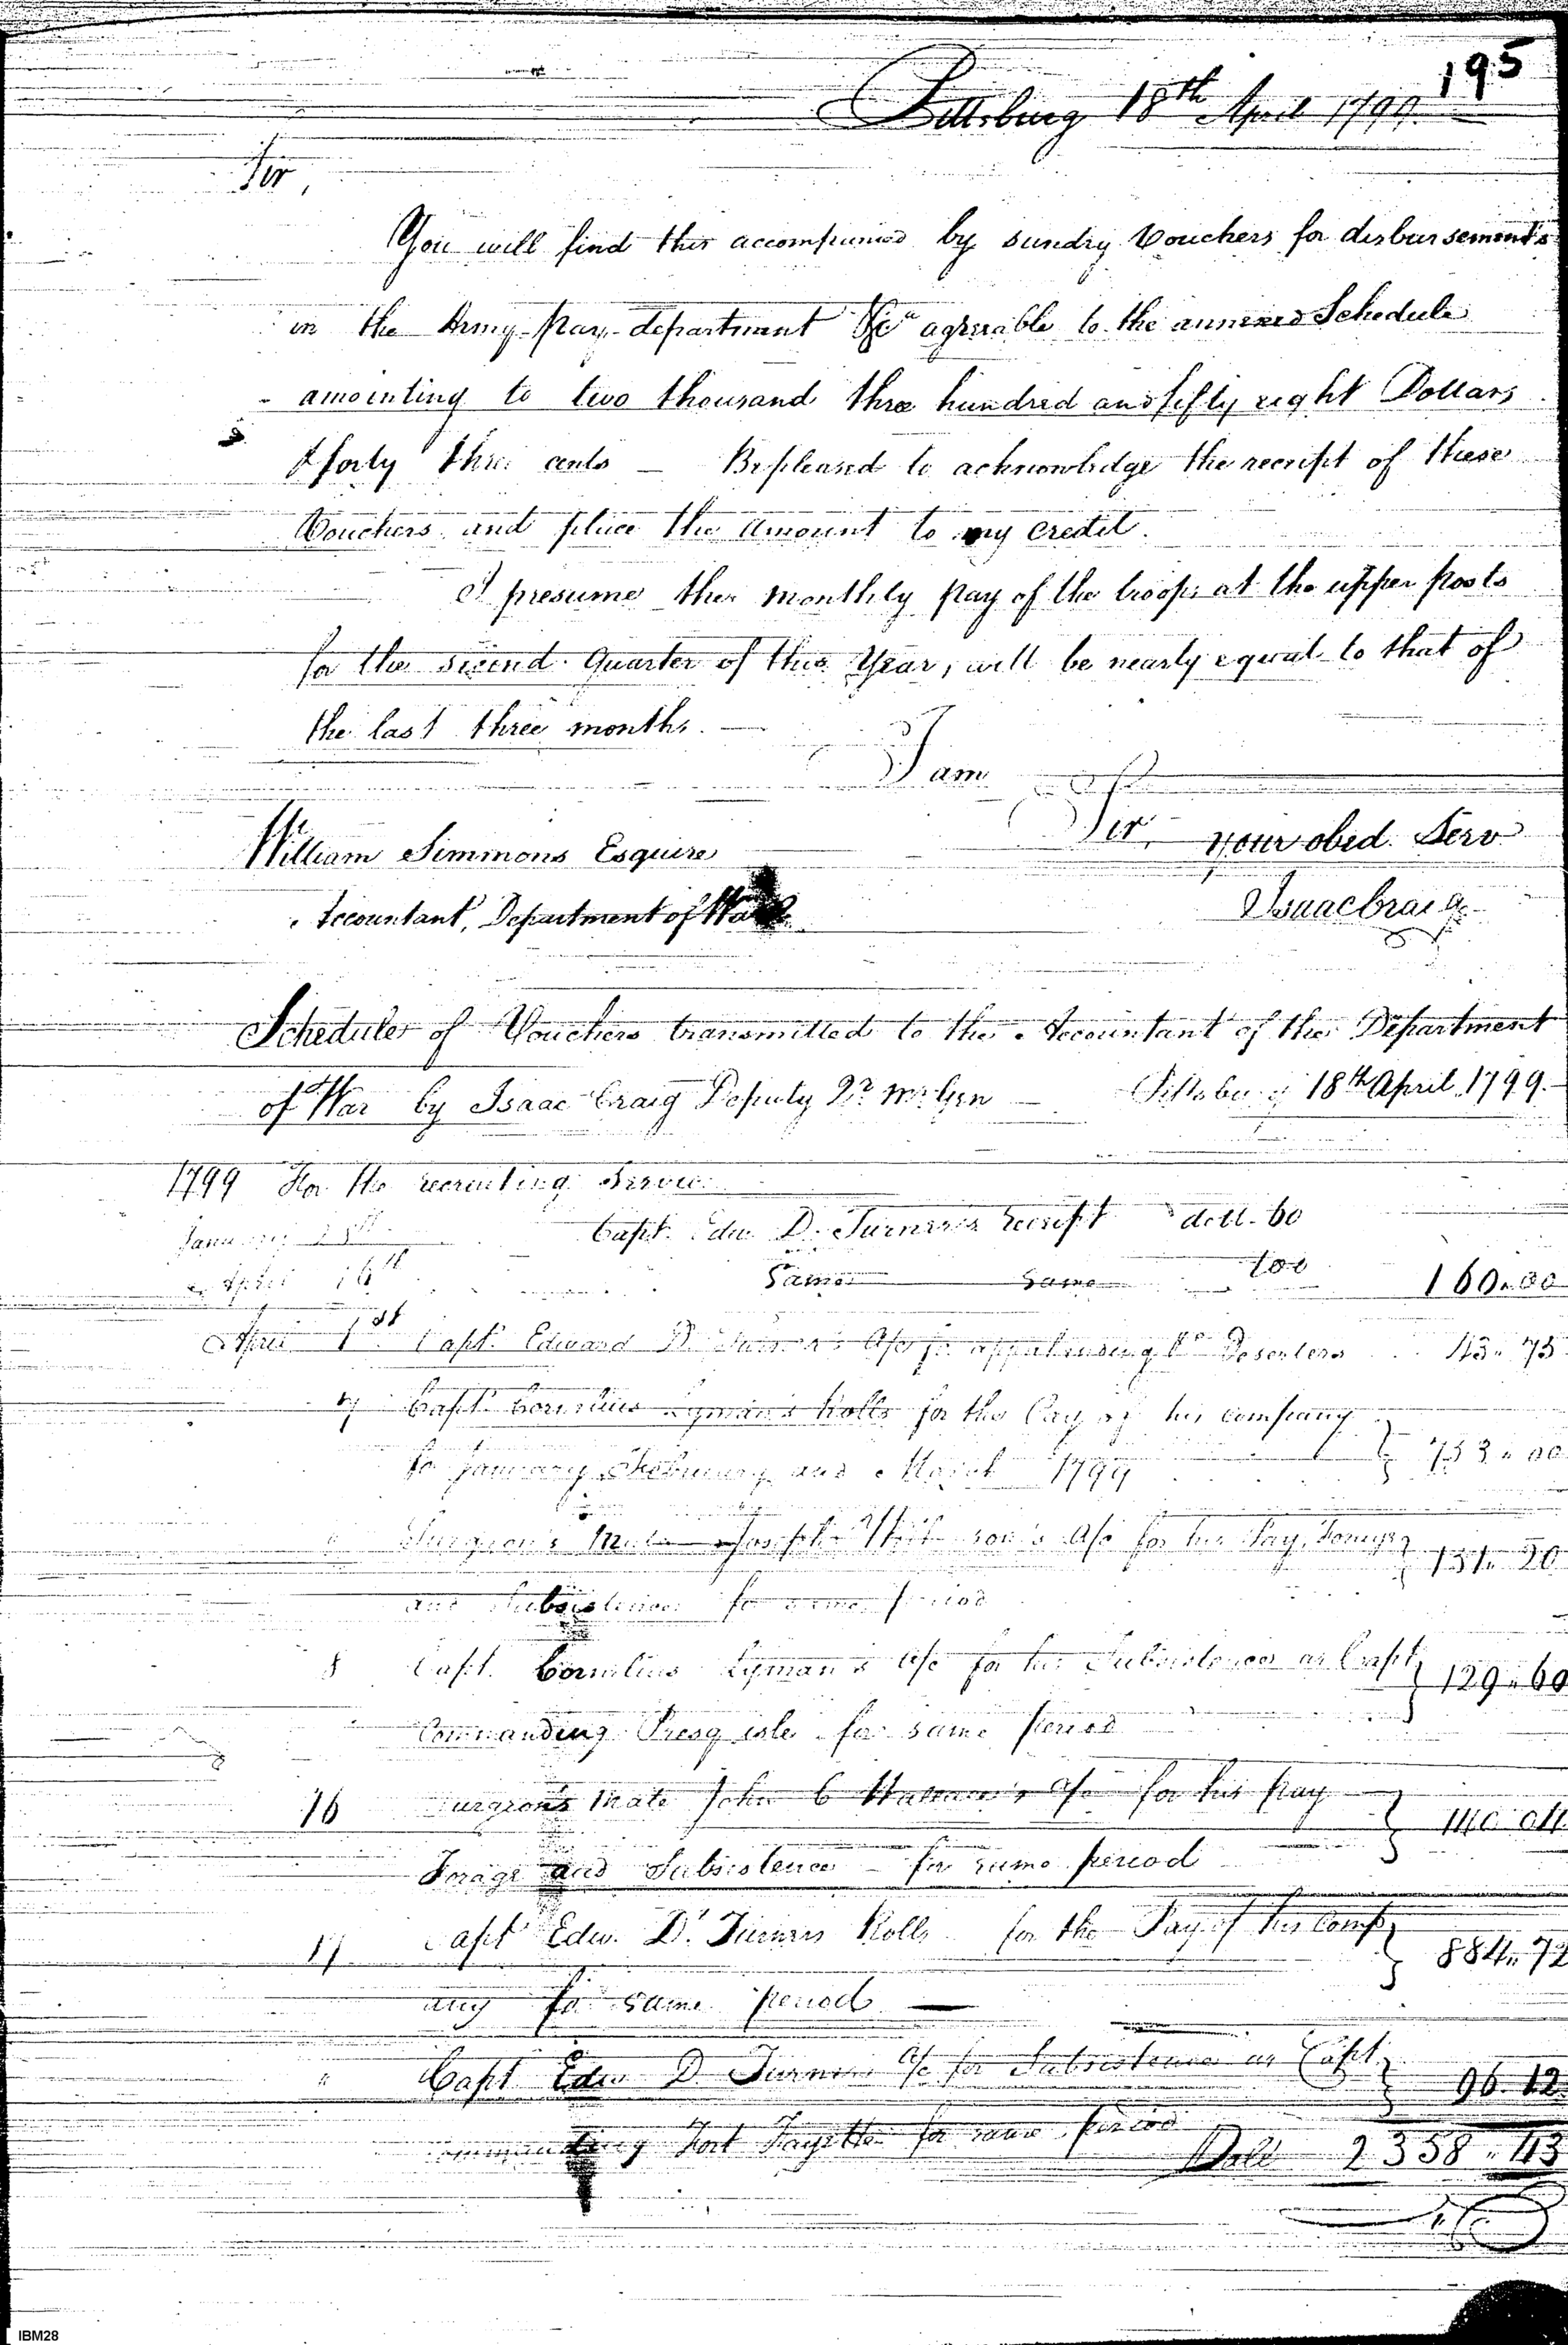 195
Pittsburg 18th April 1799.
Sir,
You will find this accompanied by sundry Vouchers for disbursements
in the Army pay department &ca agreeable to the annexed Schedule
amointing to two thousand three hundred and fifty eight Dollars
& forty three cents — Be pleased to acknowledge the receipt of these
Vouchers and place the amount to my credit.
I presume the monthly pay of the troops at the upper posts
for the second quarter of this Year, will be nearly equal to that of
the last three months. —
I am
Sir, your obed. Serv
William Simmons Esquire
Accountant, Department of War
Isaac Craig
Schedule of Vouchers transmitted to the Accountant of the Department
of War by Isaac Craig Deputy Qr. Mr. Gen — Pittsburg 18th April 1799.
1799 For the recruiting Service
January Capt. Edw. D. Turner's receipt doll. 60
April 16th Same Same 100 160..00
April 1st Capt. Edward D. Turner's A/c for apprehending Deserters 43..75
7 Capt. Cornelius Lyman's Rolls for the Pay of his company
for January February and March 1799 753..00
Surgeon's Mate Joseph A/c for his Pay, Forage
and Subsistence for same period 151..20
8 Capt. Cornelius Lyman's A/c for his Subsistence as Capt.
Commanding Presq isle for same period 129..60
16 Surgeon's Mate John C Wallace's A/c for his pay
Forage and Subsistence — for same period 140 04
17 Capt Edw. D. Turners Rolls for the Pay of his Comp
any for same period — 884..72
" Capt Edw D Turners A/c for Subsistence as Capt.
Commanding Fort Fayette for same period 96.12
Dolls 2358..43
IBM28